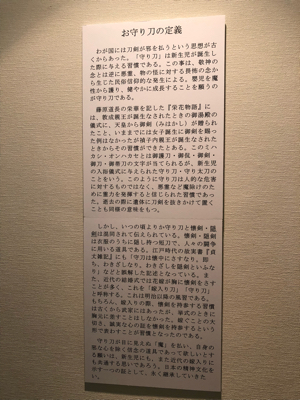 お守り刀の定義
わが国には刀剣が邪を払うという思想が古
くからあった。「守り刀」は新生児が誕生し
た際に与える習慣である。この事は、敬神の
念とは逆に悪霊、物の怪に対する畏怖の念か
ら生じた民俗信仰的な発生による。嬰児を魔
性から護り、健やかに成長することを願うの
が守り刀である。
藤原道長の栄華を記した『栄花物語』に
は、敦成親王が誕生なされたときの御湯殿の
儀式に、天皇から御剣（みはかし）が贈られ
たこと、いままでには女子誕生に御剣を賜っ
た例はなかったが禎子内親王が誕生なされた
ときからその習慣ができたとある。このミハ
カシ・オンハカセとは御護刀・御佩・御剣・
御刀・御帯刀の文字が当てられるが、新生児
の入浴儀式に与えられた守り刀・守り太刀の
ことをいう。このように守り刀は人的な危害
に対するものではなく、悪霊など魔除けのた
めに霊力を発揮すると信じられた習慣であっ
た。逝去の際に遺体に刀剣を抜きかけて置く
ことも同様の意味をもつ。
しかし、いつの頃よりか守り刀と懐剣・隠
剣は混同されて伝えられている。懐剣・隠剣
は衣服のうちに隠し持つ短刀で、人々の闘争
に用いる道具である。江戸時代の故実書『貞
丈雑記』にも「守刀は懐中にさすなり、脇
ち、わきざしなり、わきざしを隠剣といふな
り」などと誤解した記述となっている。ま
た、近代の結婚式では花嫁が胸に懐剣をさす
ことが多く、これを「嫁入り刀」「守り刀」
と呼称する。これは明治以降の風習である。
もちろん、嫁入りの際、懐剣を持参する習慣
は古くから武家にはあったが、挙式のときに
胸元に差すことはしなかった。嫁ぐことの大
切さ、誠実な心の証を懐剣を持参するという
形で表わすことが習慣となったのである。
守り刀が目に見えぬ「魔」を払い、自身の
邪な心を除く信念の道具であって欲しいとす
る願いは、新生児にも、また近代の嫁入り時
にも共通する思いであろう。日本の精神文化を
示す一つの証として、永く継承していきた